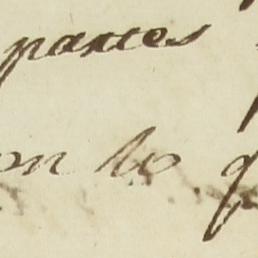 partes
on lo q